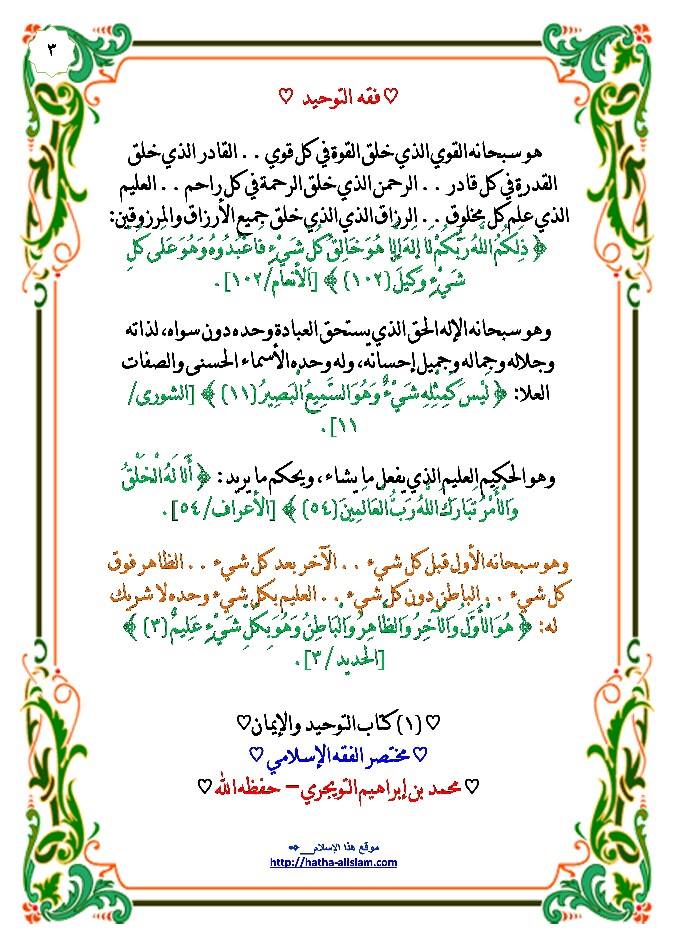 ٣
♡ فقه التوحيد ♡
هو سبحانه القوي الذي خلق القوة في كل قوي . . القادر الذي خلق
القدرة في كل قادر . . الرحمن الذي خلق الرحمة في كل راحم . . العليم
الذي علم كل مخلوق . . الرزاق الذي الذي خلق جميع الأرزاق والمرزوقين:
﴿ ذَلِكُمُ اللَّهُ رَبُّكُمْ لَا إِلَهَ إِلَّا هُوَ خَالِقُ كُلِّ شَيْءٍ فَاعْبُدُوهُ وَهُوَ عَلَى كُلِّ
شَيْءٍ وَكِيلٌ (١٠٢) ﴾ [الأنعام/١٠٢] .
وهو سبحانه الإله الحق الذي يستحق العبادة وحده دون سواه، لذاته
وجلاله وجماله وجميل إحسانه، وله وحده الأسماء الحسنى والصفات
العلا: ﴿ لَيْسَ كَمِثْلِهِ شَيْءٌ وَهُوَ السَّمِيعُ الْبَصِيرُ (١١) ﴾ [الشورى/
١١] .
وهو الحكيم العليم الذي يفعل ما يشاء، ويحكم ما يريد: ﴿ أَلَا لَهُ الْخَلْقُ
وَالْأَمْرُ تَبَارَكَ اللَّهُ رَبُّ الْعَالَمِينَ (٥٤) ﴾ [الأعراف/٥٤] .
وهو سبحانه الأول قبل كل شيء . . الآخر بعد كل شيء . . الظاهر فوق
كل شيء . . الباطن دون كل شيء . . العليم بكل شيء وحده لا شريك
له: ﴿ هُوَ الْأَوَّلُ وَالْآخِرُ وَالظَّاهِرُ وَالْبَاطِنُ وَهُوَ بِكُلِّ شَيْءٍ عَلِيمٌ (٣) ﴾
[الحديد/٣] .
♡ (١) كتاب التوحيد والإيمان♡
♡ مختصر الفقه الإسلامي ♡
♡ محمد بن إبراهيم التويجري – حفظه الله ♡
موقع هذا الإسلام__
http://hatha-alislam.com